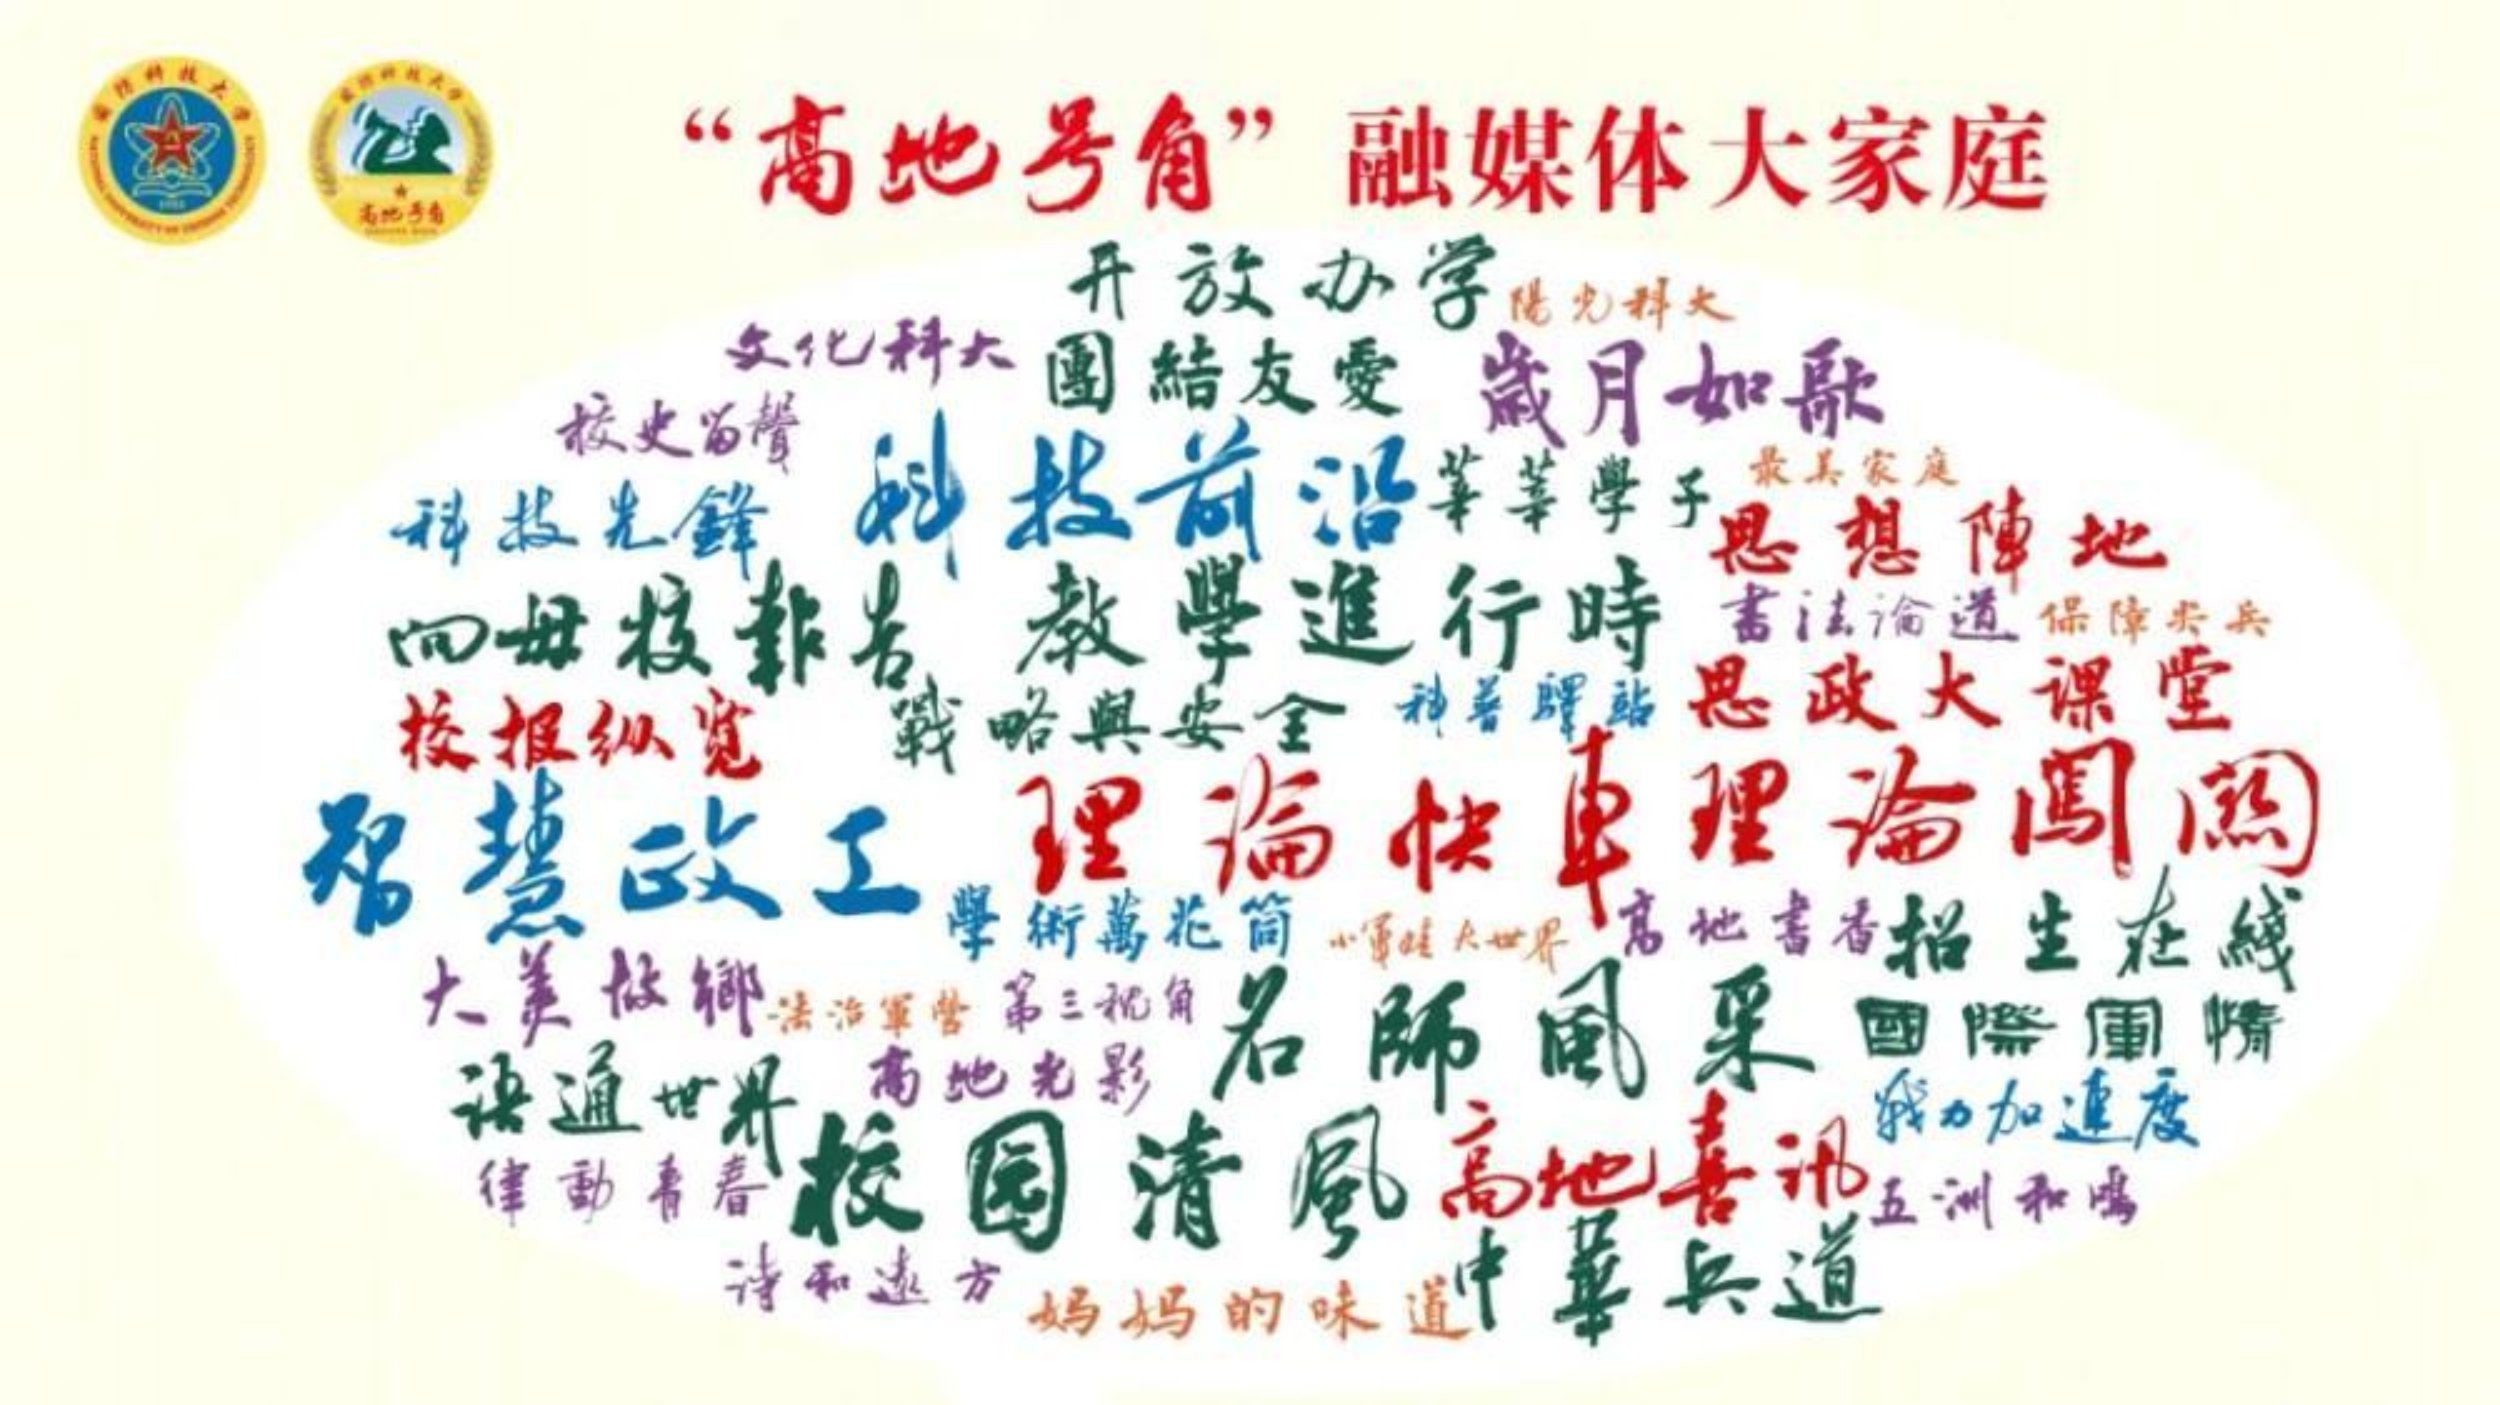 国防科技大学
国防科技大学
高地号角
“高地号角”融媒体大家庭
开放办学
陽光科大
文化科大
團結友愛
歲月如歌
校史留聲
科技前沿
莘莘學子
最美家庭
科技先鋒
思想陣地
向母校報告
教學進行時
書法論道
保障尖兵
校报纵览
戰略與安全
科普驛站
思政大课堂
智慧政工
理論快車
理論闖關
學術萬花筒
小軍娃大世界
高地書香
招生在綫
大美故鄉
法治軍營
第三視角
名師風采
國際軍情
语通世界
高地光影
战力加速度
律動青春
校园清風
高地喜讯
五洲和鳴
诗和遠方
妈妈的味道
中華兵道